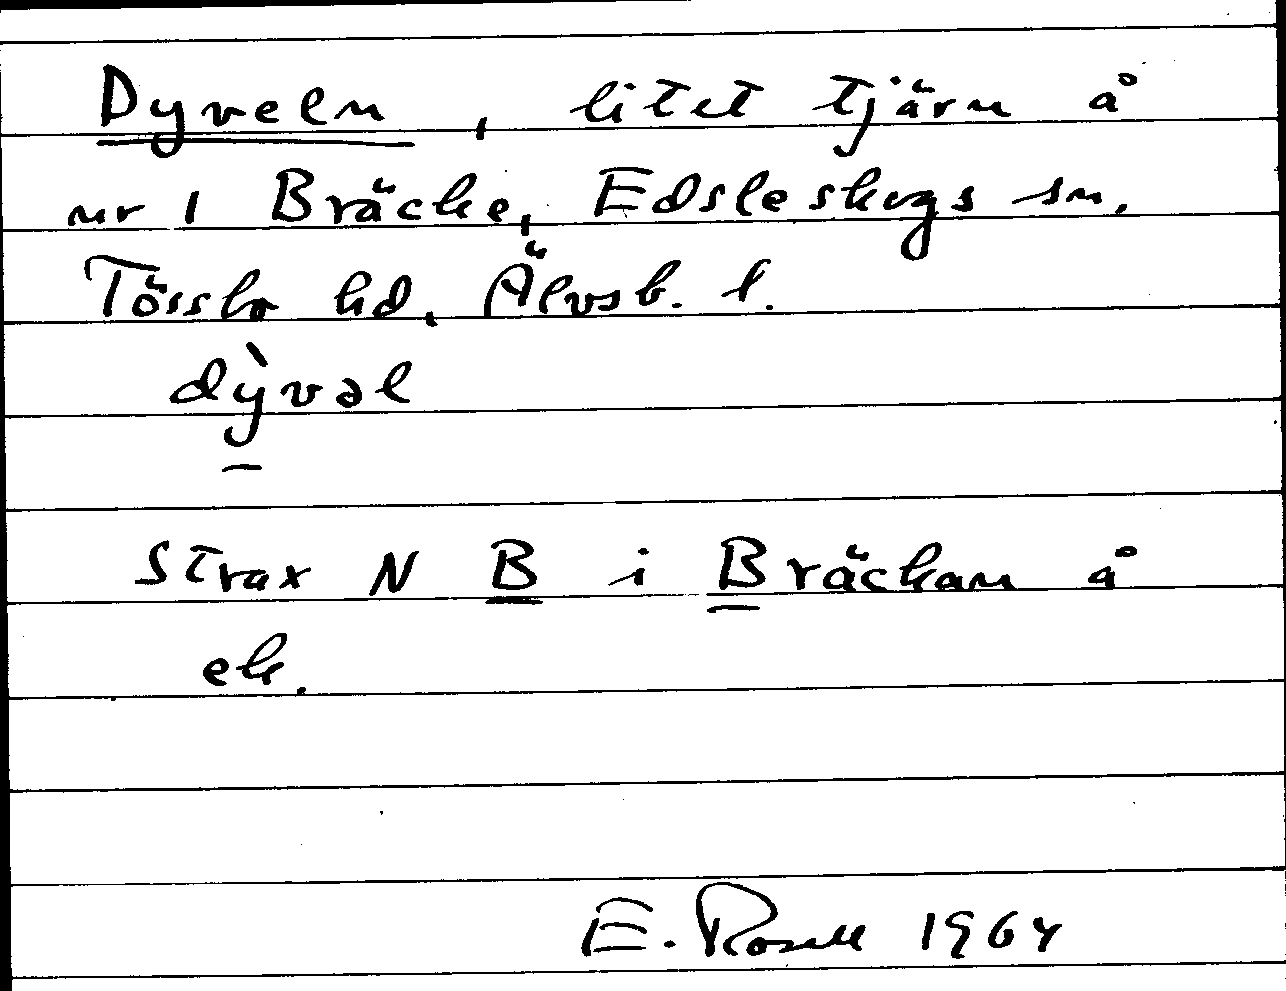 Dyveln, litet tjärn å
nr 1 Bräcke, Edsleskogs sn.
Tössbo hd, Älvsb. l.
dỳvəl
Strax N B i Bräckan å
ek.
E. Rosell 1964